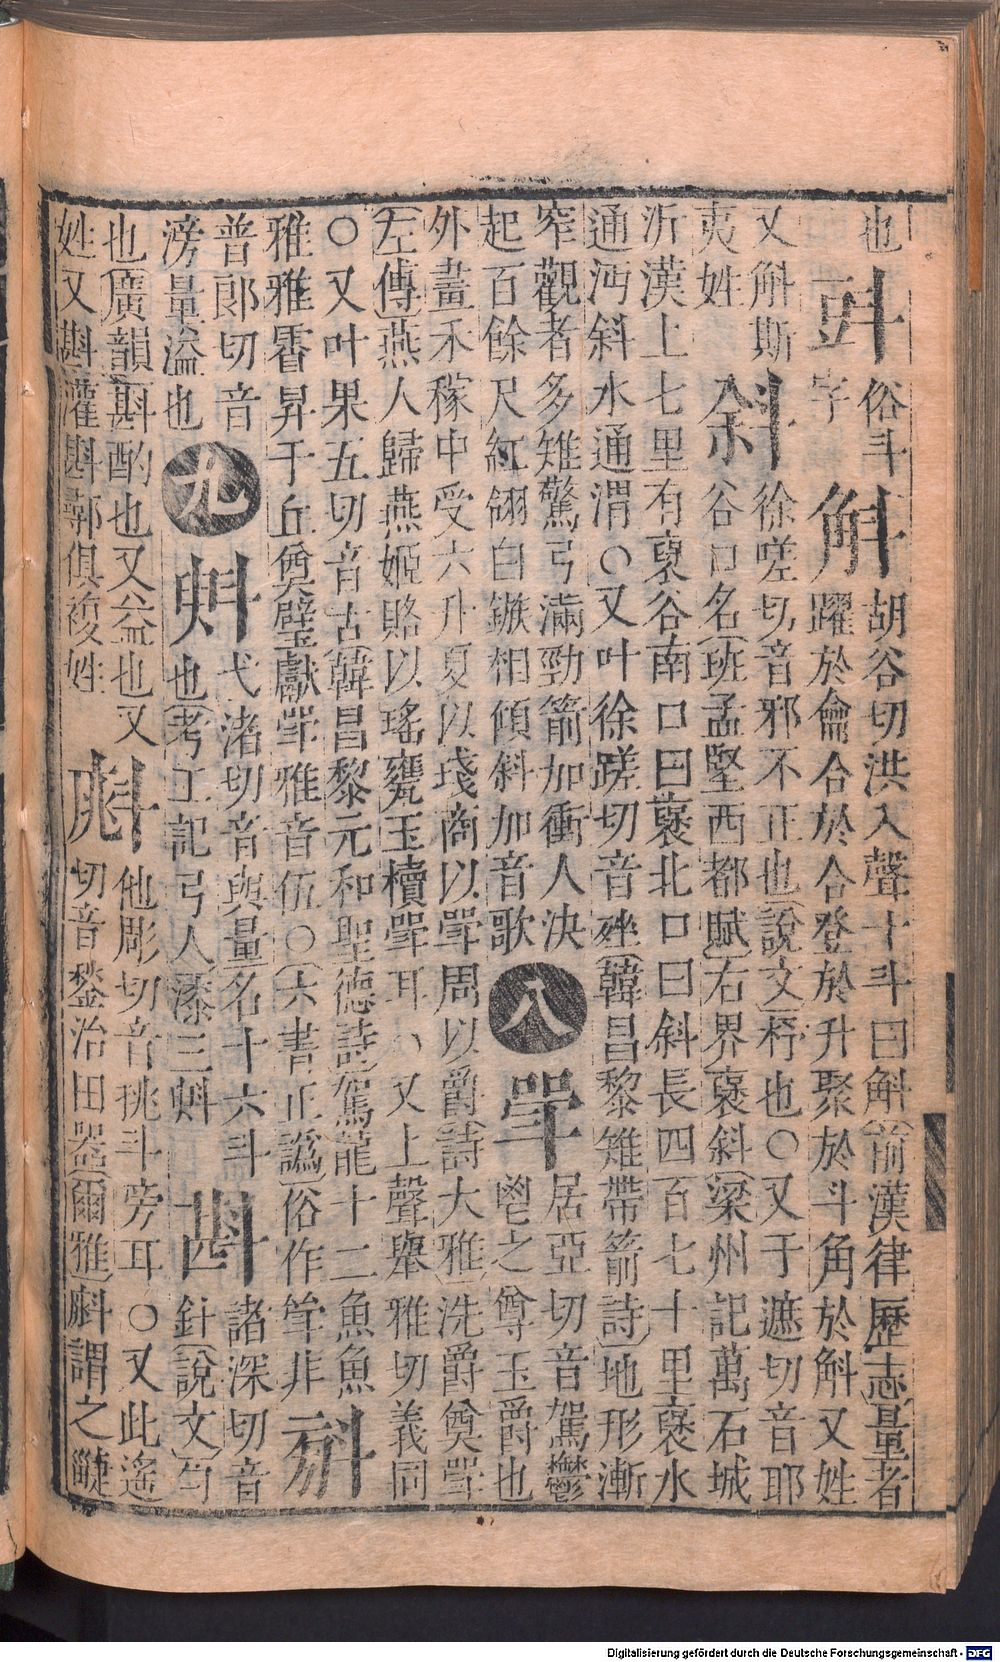 也㪷俗斗字斛胡谷切洪入聲十斗曰斛(前漢律歷志)量者
躍於龠合於合登於升聚於斗角於斛又姓
又斛斯夷姓斜徐嗟切音邪不正也(說文)杼也○又于遮切音耶
谷口名(班孟堅西都賦)右界褒斜(梁州記)萬石城
沂漢上七里有裒谷南口曰裒北口曰斜長四百七十里裒水
通沔斜水通渭○又叶徐蹉切音(韓昌黎雉帶箭詩)地形漸
窄觀者多雉驚弓滿勁箭加衝人決
起百餘尺紅翎白鏃相傾斜加音歌
八
斝居亞切音駕鬱
鬯之尊玉爵也
外畫禾稼中受六升夏以琖商以斝周以爵(詩大雅)洗爵奠斝
(左傳)燕人歸燕姬賂以瑤甕玉櫝斝耳○又上聲舉雅切義同
○又叶果五切音古(韓昌黎元和聖德詩)駕龍十二魚魚
雅雅霤昇于丘奠璧獻斝雅音伍○(六書正譌)俗作斚非
㪵普郎切音
滂量溢也
九
斞弋渚切音與量名十六斗
也(考工記弓人)漆三斞
斟諸深切音
針(說文)勺
也(廣韻)斟酌也又益也又
姓又斟灌斟鄩俱複姓
他彫切音挑斗旁耳○又此遙
切音鍫治田器(爾雅)謂之疀
Digitalisierung gefördert durch die Deutsche Forschungsgemeinschaft - DFG